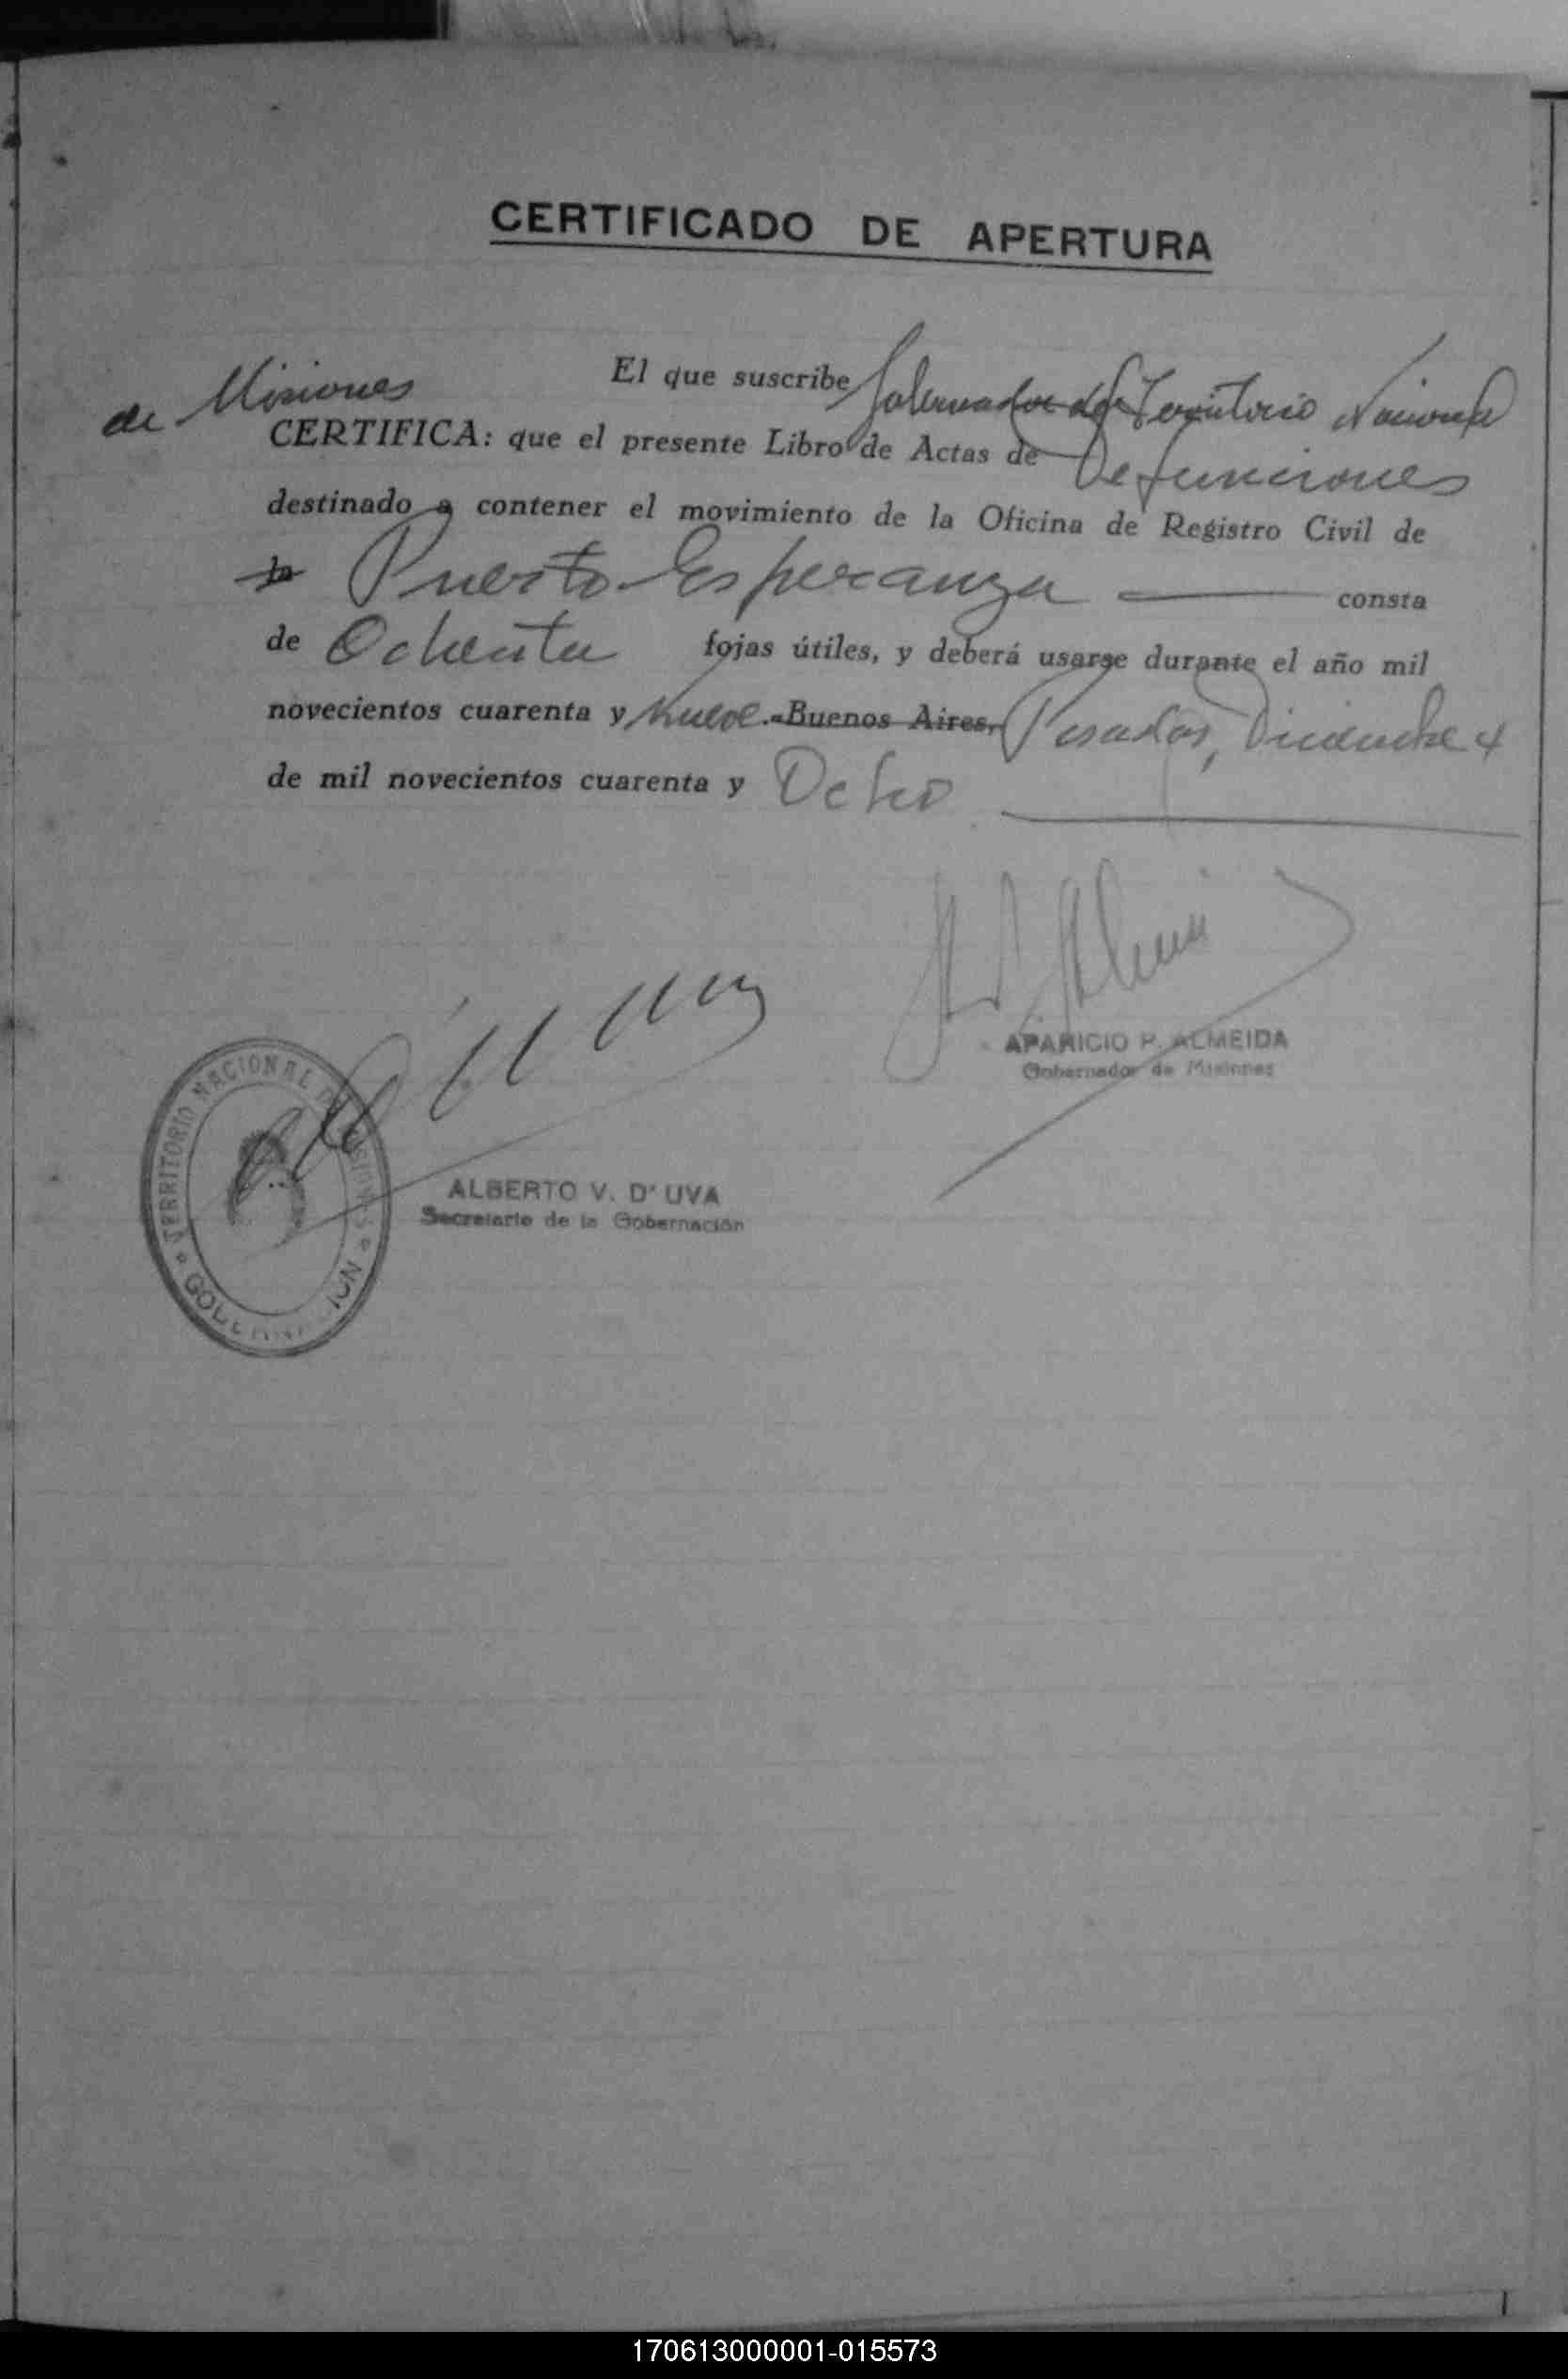 CERTIFICADO DE APERTURA
El que suscribe Gobernador del Territorio Nacional
de Misiones
CERTIFICA: que el presente Libro de Actas de Defunciones
destinado a contener el movimiento de la Oficina de Registro Civil de
la Puerto Esperanza consta
de Ochenta fojas útiles, y deberá usarse durante el año mil
novecientos cuarenta y nueve.-Buenos Aires, Posadas, Diciembre 4
de mil novecientos cuarenta y Ocho
APARICIO P. ALMEIDA
Gobernador de Misiones
ALBERTO V. D'UVA
Secretario de la Gobernación
TERRITORIO NACIONAL DE MISIONES
GOBERNACION
170613000001-015573